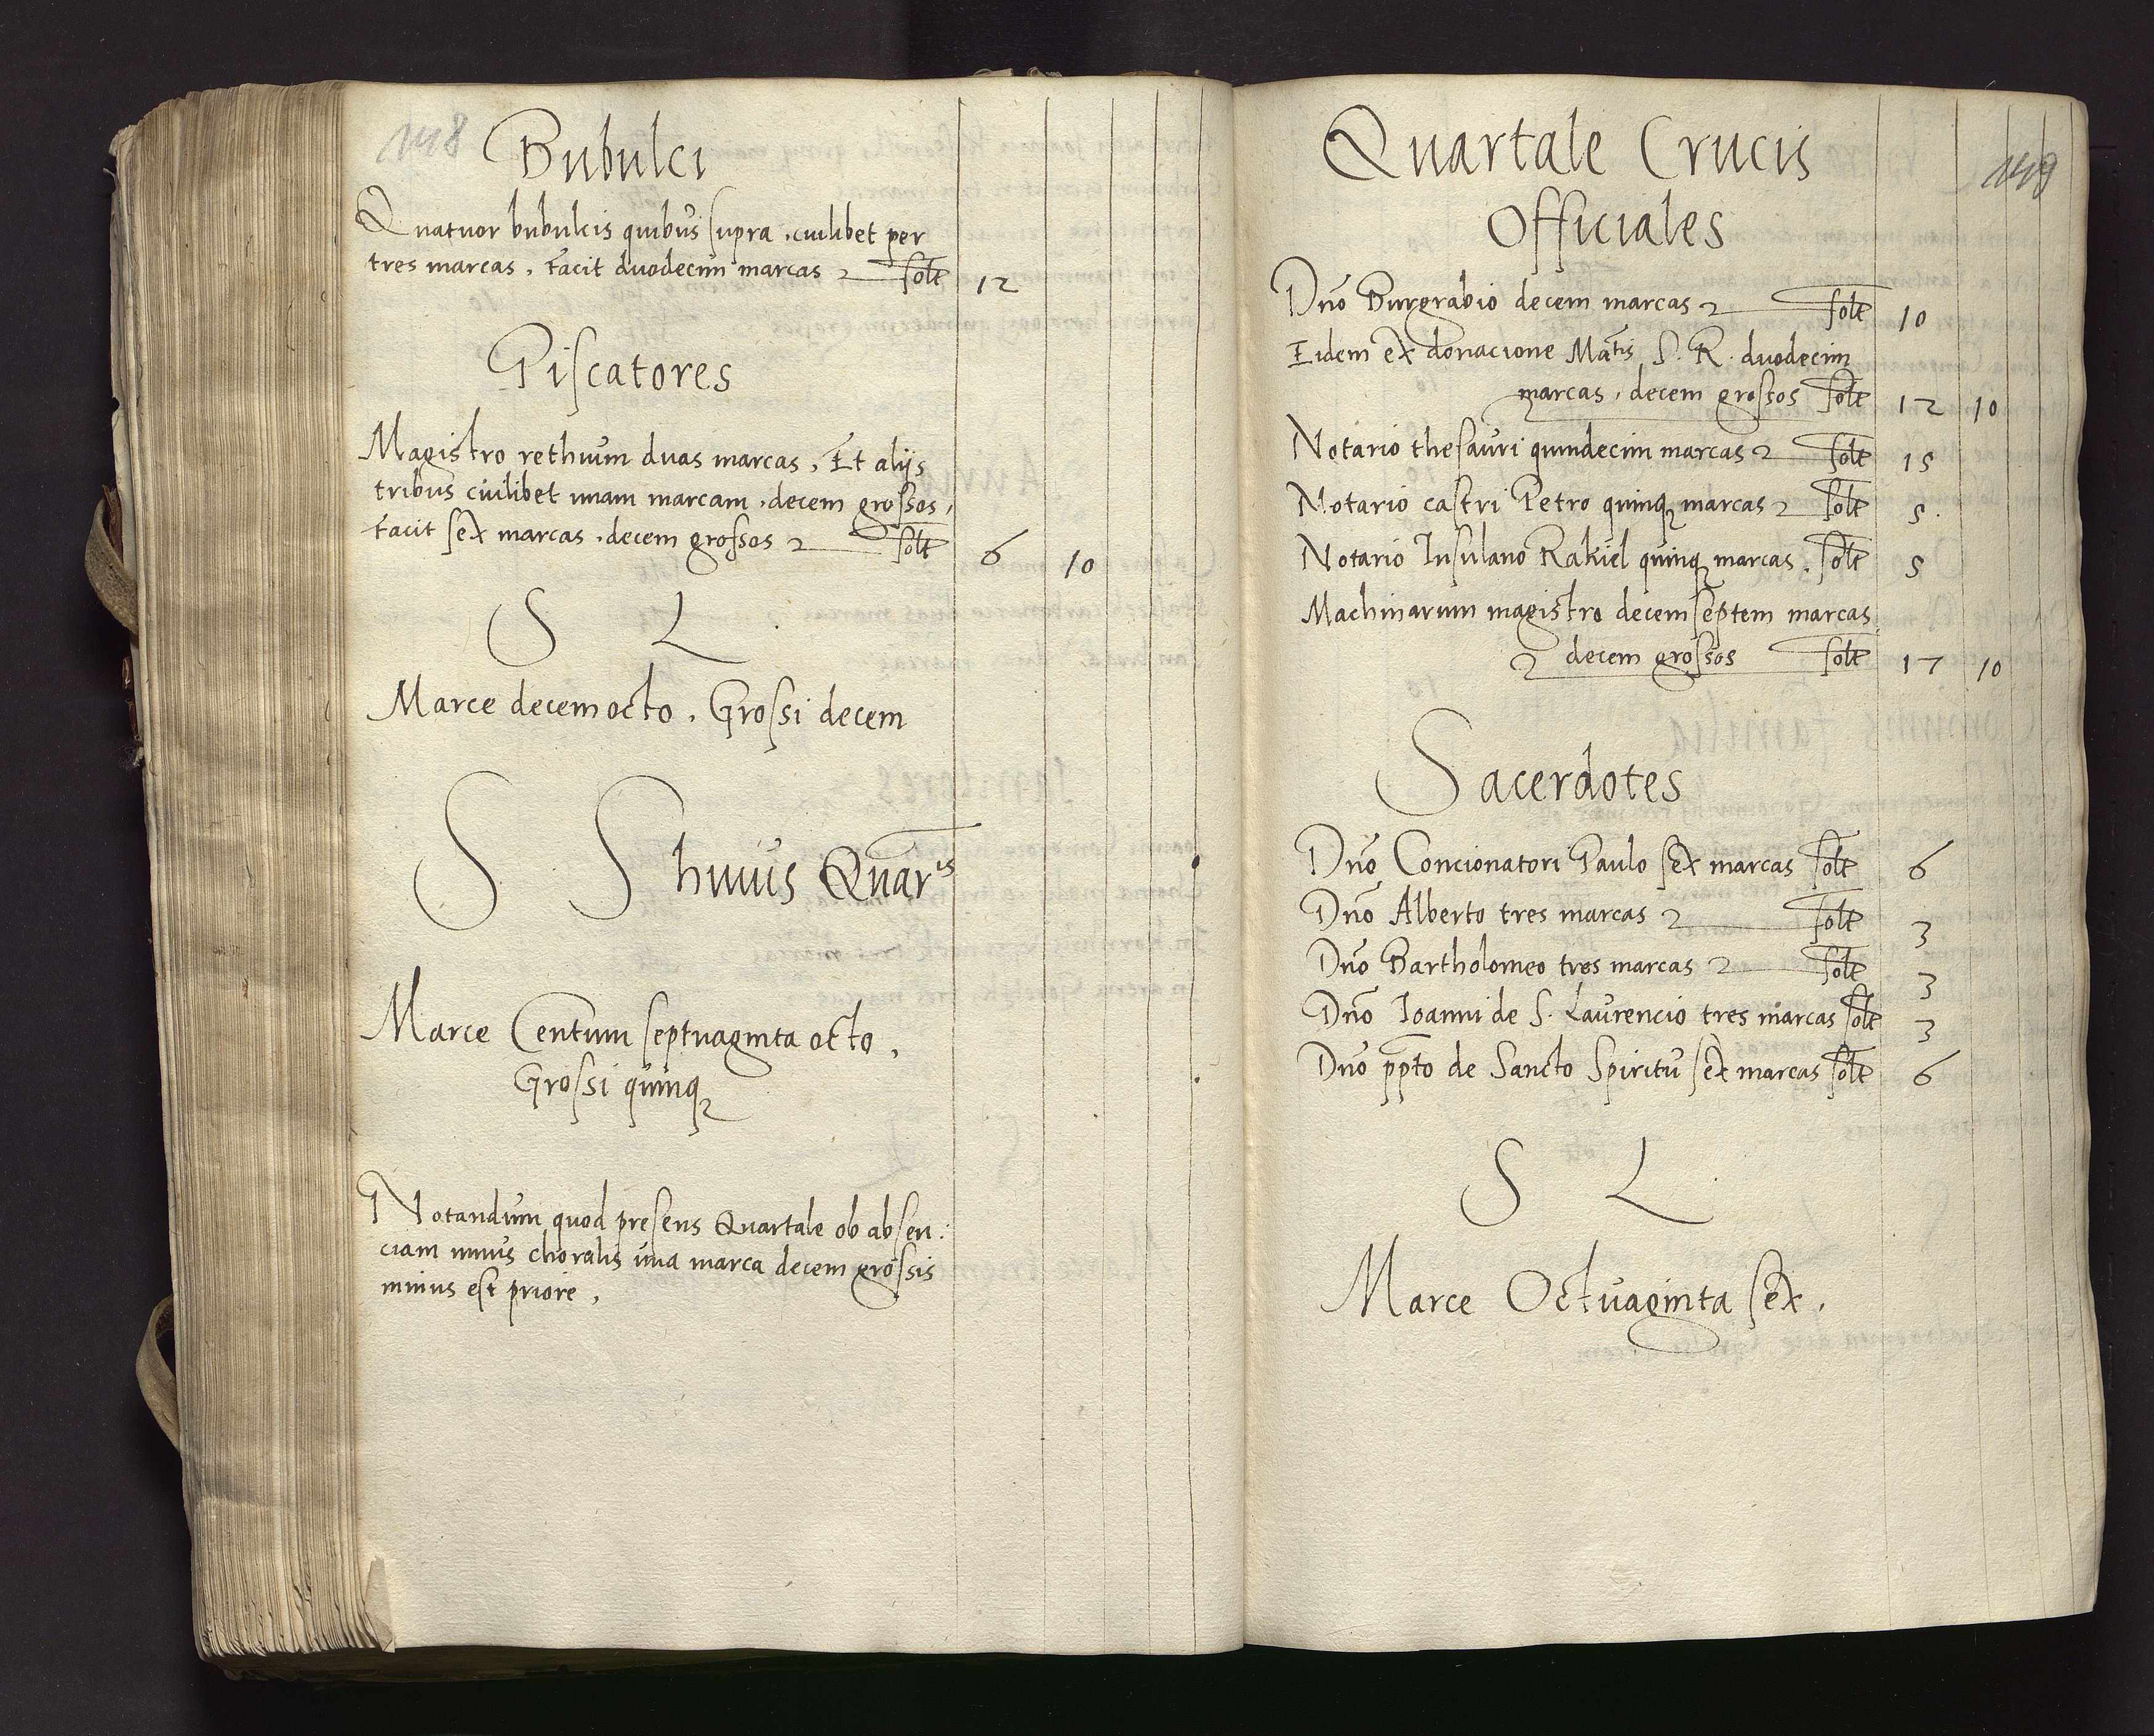 148
Bubulci
Quatuor bubulcis quibus supra, cuilibet per
tres marcas, facit duodecim marcas solt 12
Piscatores
Magistro rethium duas marcas, Et aliis
tribus cuilibet unam marcam, decem grossos,
facit sex marcas, decem grossos solt 6 10
S L
Marce decemocto, Grossi decem
S S huius Quar^is
Marce Centum septuaginta octo,
Grossi quinq
Notandum quod presens Quartale ob absen:
ciam unius choralis una marca decem grossis
minus est priore,
149
Quartale Crucis
Officiales
Dno Burgrabio decem marcas solt 10
Eidem ex donacione Matis S. R. duodecim
marcas, decem grossos solt 12 10
Notario thesauri quindecim marcas solt 15
Notario castri Petro quinq marcas solt 5
Notario Insulano Rakiel quinq marcas, solt 5
Machinarum magistro decem septem marcas
decem grossos solt 17 10
Sacerdotes
Dno Concionatori Paulo sex marcas solt 6
Dno Alberto tres marcas solt 3
Dno Bartholomeo tres marcas solt 3
Dno Ioanni de S. Laurencio tres marcas solt 3
Dno ppto de Sancto Spiritu sex marcas solt 6
S L
Marce Octuaginta sex,